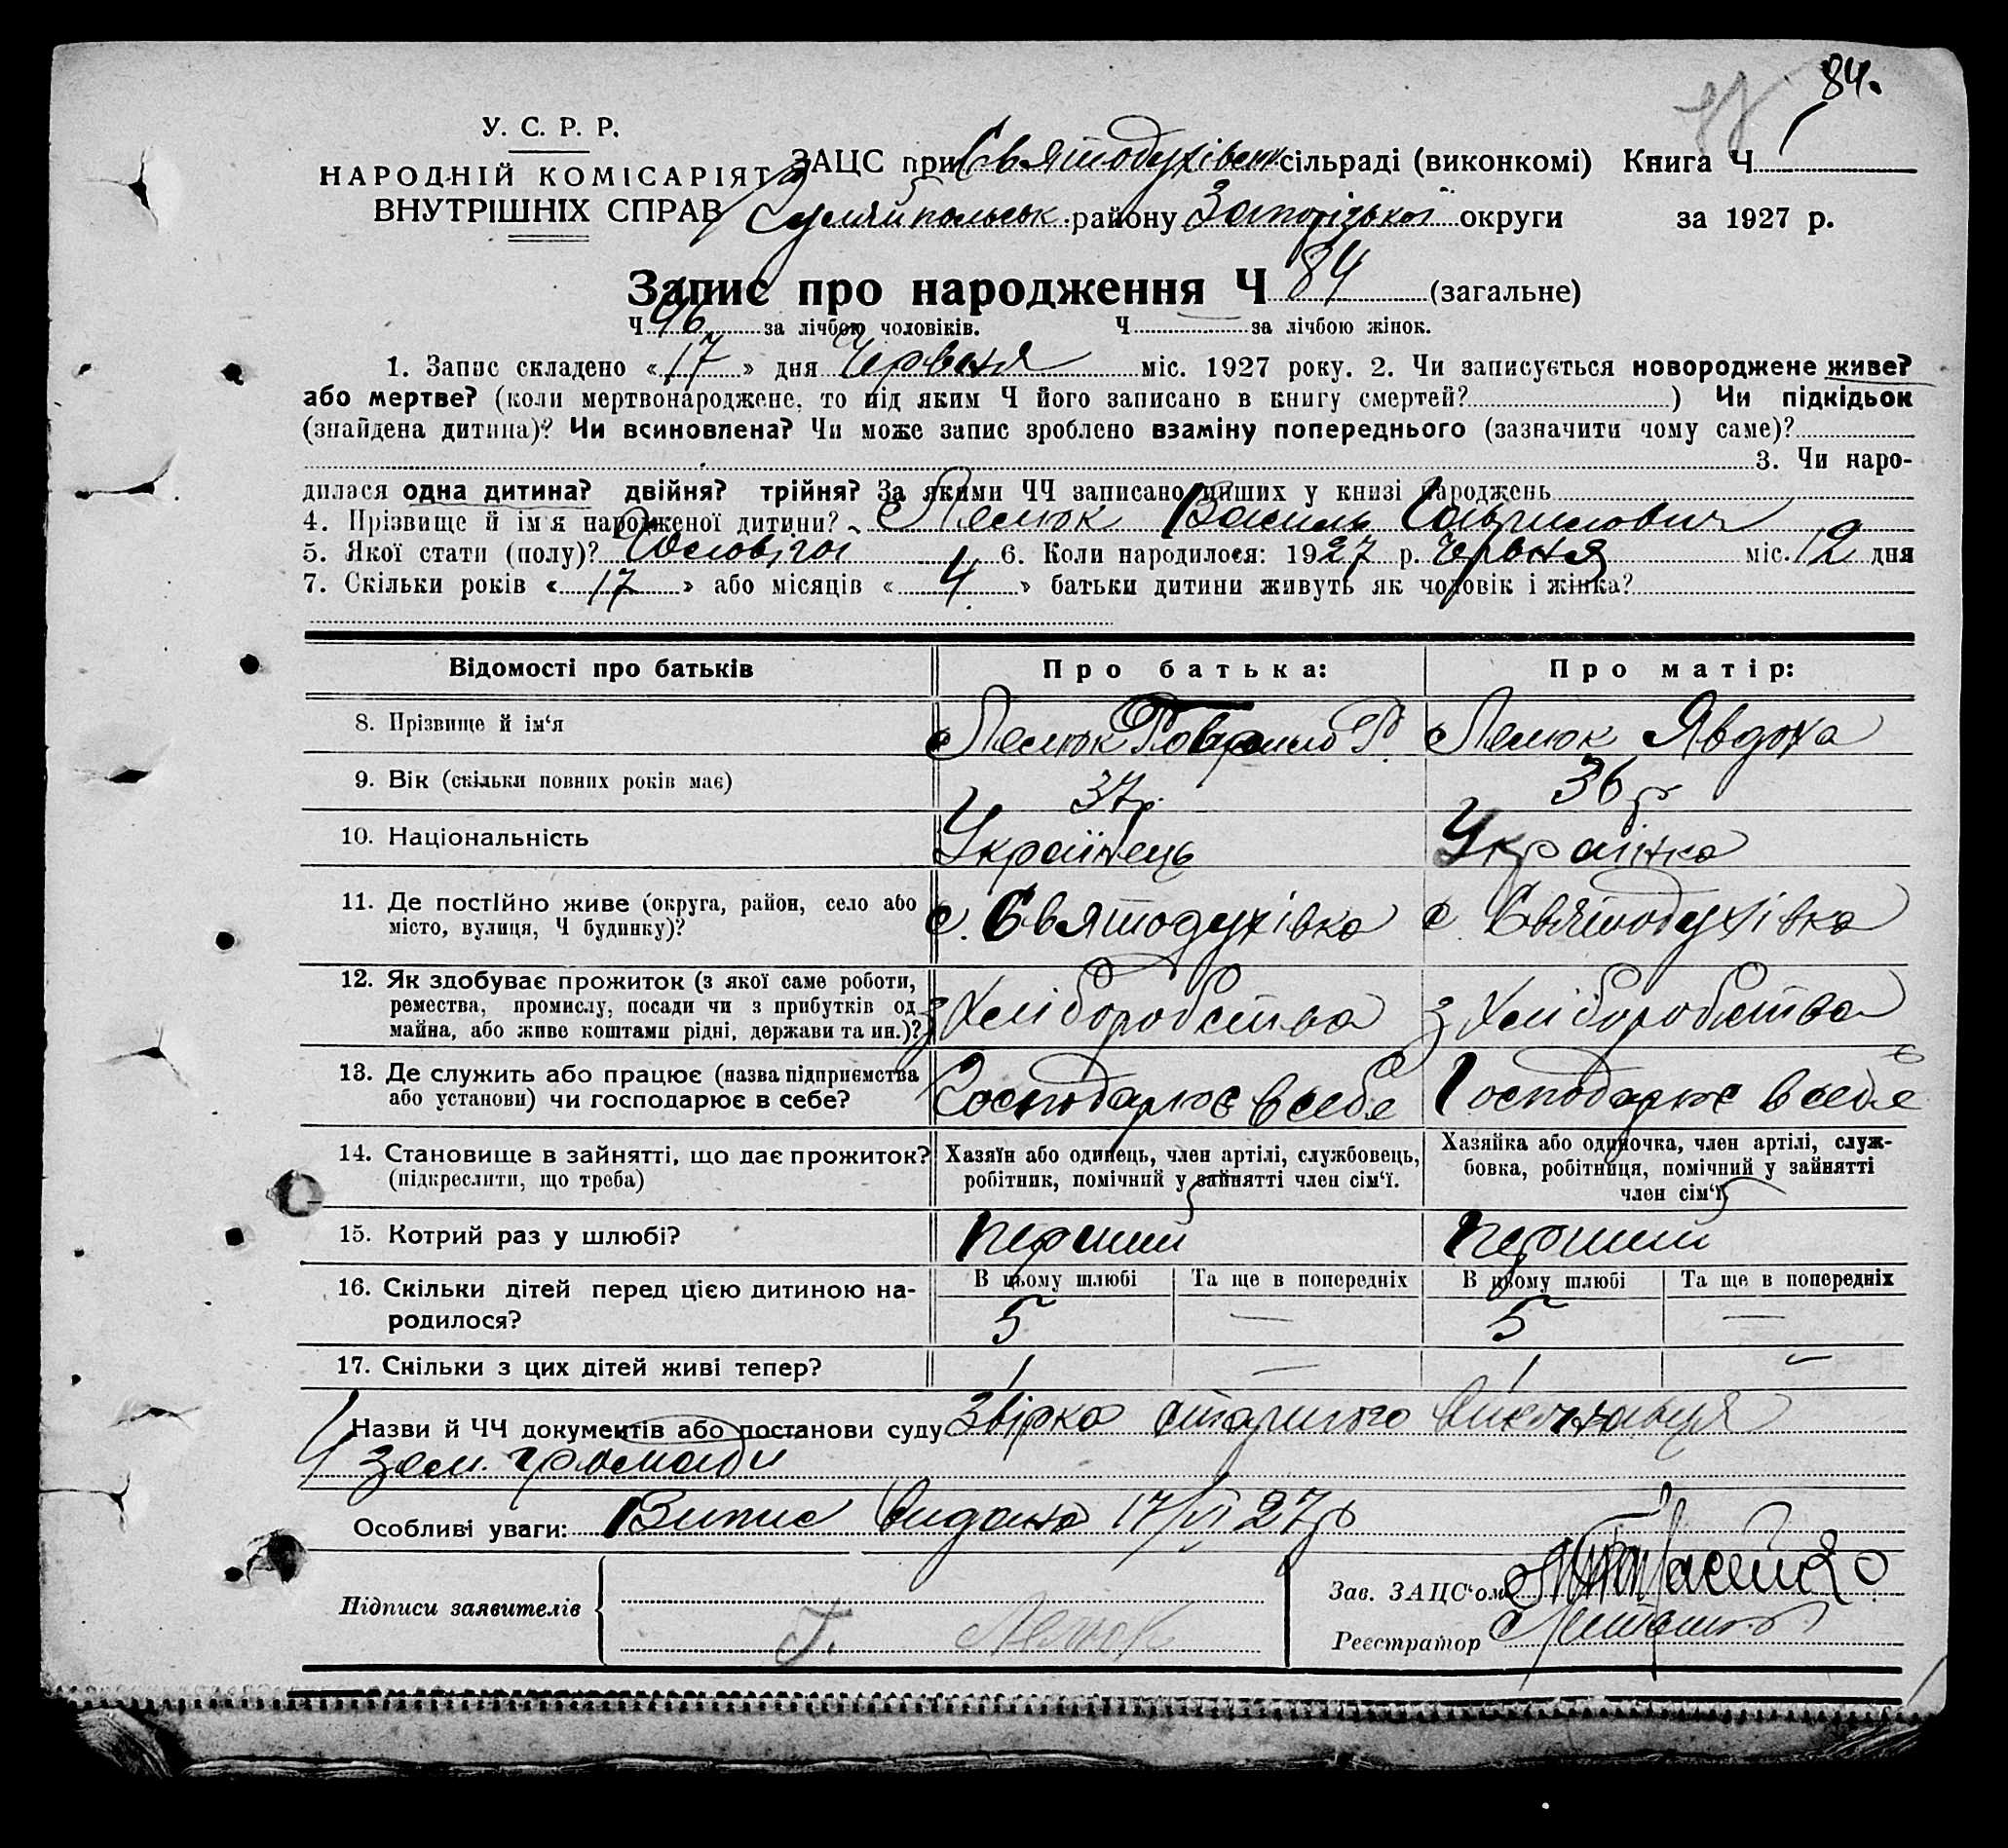 84.
У. С. Р. Р.
НАРОДНІЙ КОМІСАРІЯТ
ВНУТРІШНІХ СПРАВ
ЗАЦС при Святодухівськ. сільраді (виконкомі) Книга Ч 1
Гуляйпольськ. району Запорізької округи за 1927 р.
Запис про народження Ч 84 (загальне)
Ч 46 за лічбою чоловіків. Ч за лічбою жінок.
1. Запис складено «17» дня Червня міс. 1927 року. 2. Чи записується новороджене живе?
або мертве? (коли мертвонароджене, то під яким Ч його записано в книгу смертей? ) Чи підкідьок
(знайдена дитина)? Чи всиновлена? Чи може запис зроблено взаміну попереднього (зазначити чому саме)?
3. Чи наро-
дилася одна дитина? двійня? трійня? За якими ЧЧ записано инших у книзі народжень
4. Прізвище й ім'я народженої дитини? Лелюк Василь Гаврилович
5. Якої стати (полу)? Чоловічої 6. Коли народилося: 1927 р. Червня міс. 12 дня
7. Скільки років «17» або місяців «4» батьки дитини живуть як чоловік і жінка?
Відомості про батьків Про батька: Про матір:
8. Прізвище й ім'я Лелюк Гаврило Лелюк Явдоха
9. Вік (скільки повних років має) 37 р. 36 р
10. Національність Українець Українка
11. Де постійно живе (округа, район, село або
місто, вулиця, Ч будинку)? с. Святодухівка с. Святодухівка
12. Як здобуває прожиток (з якої саме роботи,
ремества, промислу, посади чи з прибутків од
майна, або живе коштами рідні, держави та ин.)? з Хліборобства з Хліборобства
13. Де служить або працює (назва підприємства
або установи) чи господарює в себе? Господарює в себе Господарює в себе
14. Становище в зайнятті, що дає прожиток?
(підкреслити, що треба)
Хазяїн або одинець, член артілі, службовець,
робітник, помічний у зайнятті член сім'ї.
Хазяйка або одиночка, член артілі, служ-
бовка, робітниця, помічний у зайнятті
член сім'ї
15. Котрий раз у шлюбі? перший перший
16. Скільки дітей перед цією дитиною на-
родилося?
В цьому шлюбі Та ще в попередніх В цьому шлюбі Та ще в попередніх
5 — 5 —
17. Скільки з цих дітей живі тепер? 1 — 1 —
Назви й ЧЧ документів або постанови суду Звірка старшого виконавця
зем. громади
Особливі уваги: Випис видано 17/VI 27 р
Підписи заявителів
Г. Лелюк
Зав. ЗАЦС'ом
Реєстратор